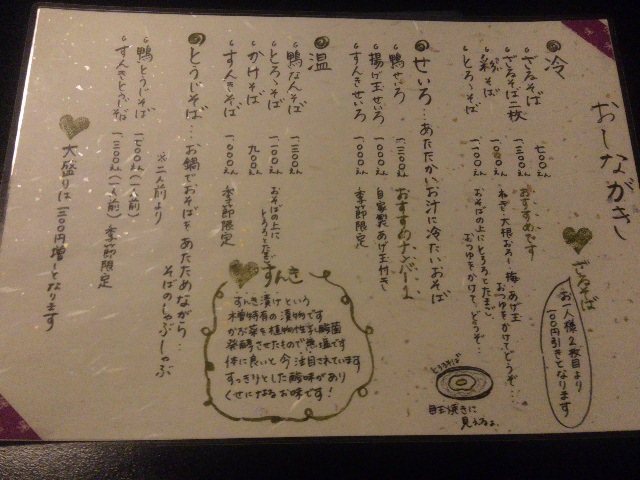 おしながき
冷
ざるそば 七〇〇えん おすすめです
ざるそば二枚 一、三〇〇えん
彩そば 一、一〇〇えん ねぎ・大根おろし・梅・あげ玉
おつゆをかけてどうぞ…
とろゝそば 一、〇〇〇えん おそばの上にとろろとたまご。
おつゆをかけて、どうぞ…
ざるそば
お一人様2枚目より
100円引きとなります
せいろ…あたたかいお汁に冷たいおそば
鴨せいろ 一、三〇〇えん おすすめナンバー1
揚げ玉せいろ 一、〇〇〇えん 自家製あげ玉付き
すんきせいろ 一、〇〇〇えん 季節限定
とろろそば
目玉焼きに
見えるよ
温
鴨なんそば 一、三〇〇えん
とろゝそば 一、一〇〇えん おそばの上に
とろろとたまご
かけそば 九〇〇えん
すんきそば 一、〇〇〇えん 季節限定
すんき
すんき漬けという
木曽特有の漬物です
かぶ菜を植物性乳酸菌
発酵させたもので無塩です
体に良いと今注目されています
すっきりとした酸味があり
くせになるお味です!
とうじそば…お鍋でおそばをあたためながら…
そばのしゃぶしゃぶ
※二人前より
鴨とうじそば 一、七〇〇えん(一人前)
すんきとうじそば 一、三〇〇えん(一人前) 季節限定
大盛りは三〇〇円増しとなります